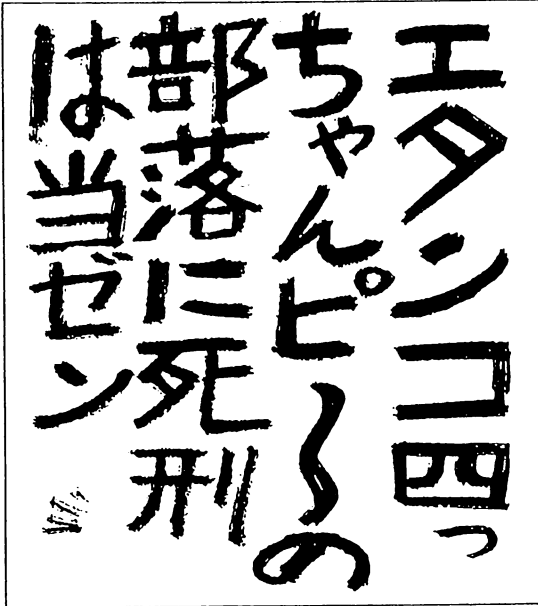 エタンコ四っ
ちゃんピ〜の
部落に死刑
は当ゼン